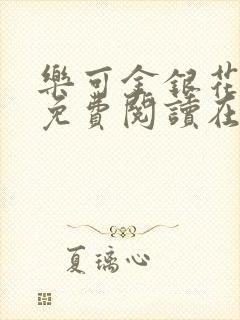 樂可金銀花
免費閱讀在
夏璃心